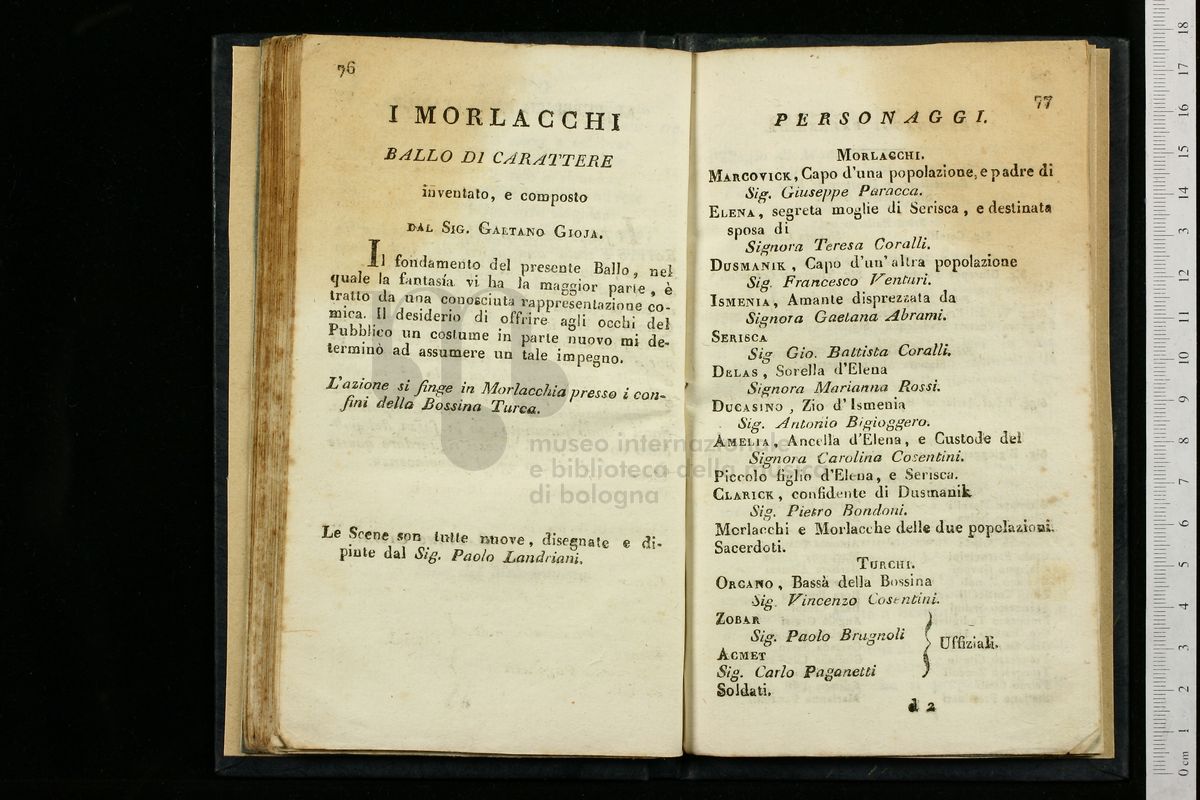 76
I MORLACCHI
BALLO DI CARATTERE
inventato, e composto
DAL SIG. GAETANO GIOJA.
Il fondamento del presente Ballo, nel
quale la fantasia vi ha la maggior parte, è
tratto da una conosciuta rappresentazione co-
mica. Il desiderio di offrire agli occhi del
Pubblico un costume in parte nuovo mi de-
terminò ad assumere un tale impegno.
L'azione si finge in Morlacchia presso i con-
fini della Bossina Turca.
Le Scene son tutte nuove, disegnate e di-
pinte dal Sig. Paolo Landriani.
77
PERSONAGGI.
MORLACCHI.
MARCOVICK, Capo d'una popolazione, e padre di
Sig. Giuseppe Paracca.
ELENA, segreta moglie di Serisca, e destinata
sposa di
Signora Teresa Coralli.
DUSMANIK, Capo d'un' altra popolazione
Sig. Francesco Venturi.
ISMENIA, Amante disprezzata da
Signora Gaetana Abrami.
SERISCA
Sig Gio. Battista Coralli.
DELAS, Sorella d'Elena
Signora Marianna Rossi.
DUCASINO, Zio d'Ismenia
Sig. Antonio Bigioggero.
AMELIA, Ancella d'Elena, e Custode del
Signora Carolina Cosentini.
Piccolo figlio d'Elena, e Serisca.
CLARICK, confidente di Dusmanik
Sig. Pietro Bondoni.
Morlacchi e Morlacche delle due popolazioni.
Sacerdoti.
TURCHI.
ORGANO, Bassà della Bossina
Sig. Vincenzo Cosentini.
ZOBAR
Sig. Paolo Brugnoli
ACMET
Sig. Carlo Paganetti
Uffiziali.
Soldati.
d 2
museo internazionale
e biblioteca della musica
di bologna
0 cm 1 2 3 4 5 6 7 8 9 10 11 12 13 14 15 16 17 18